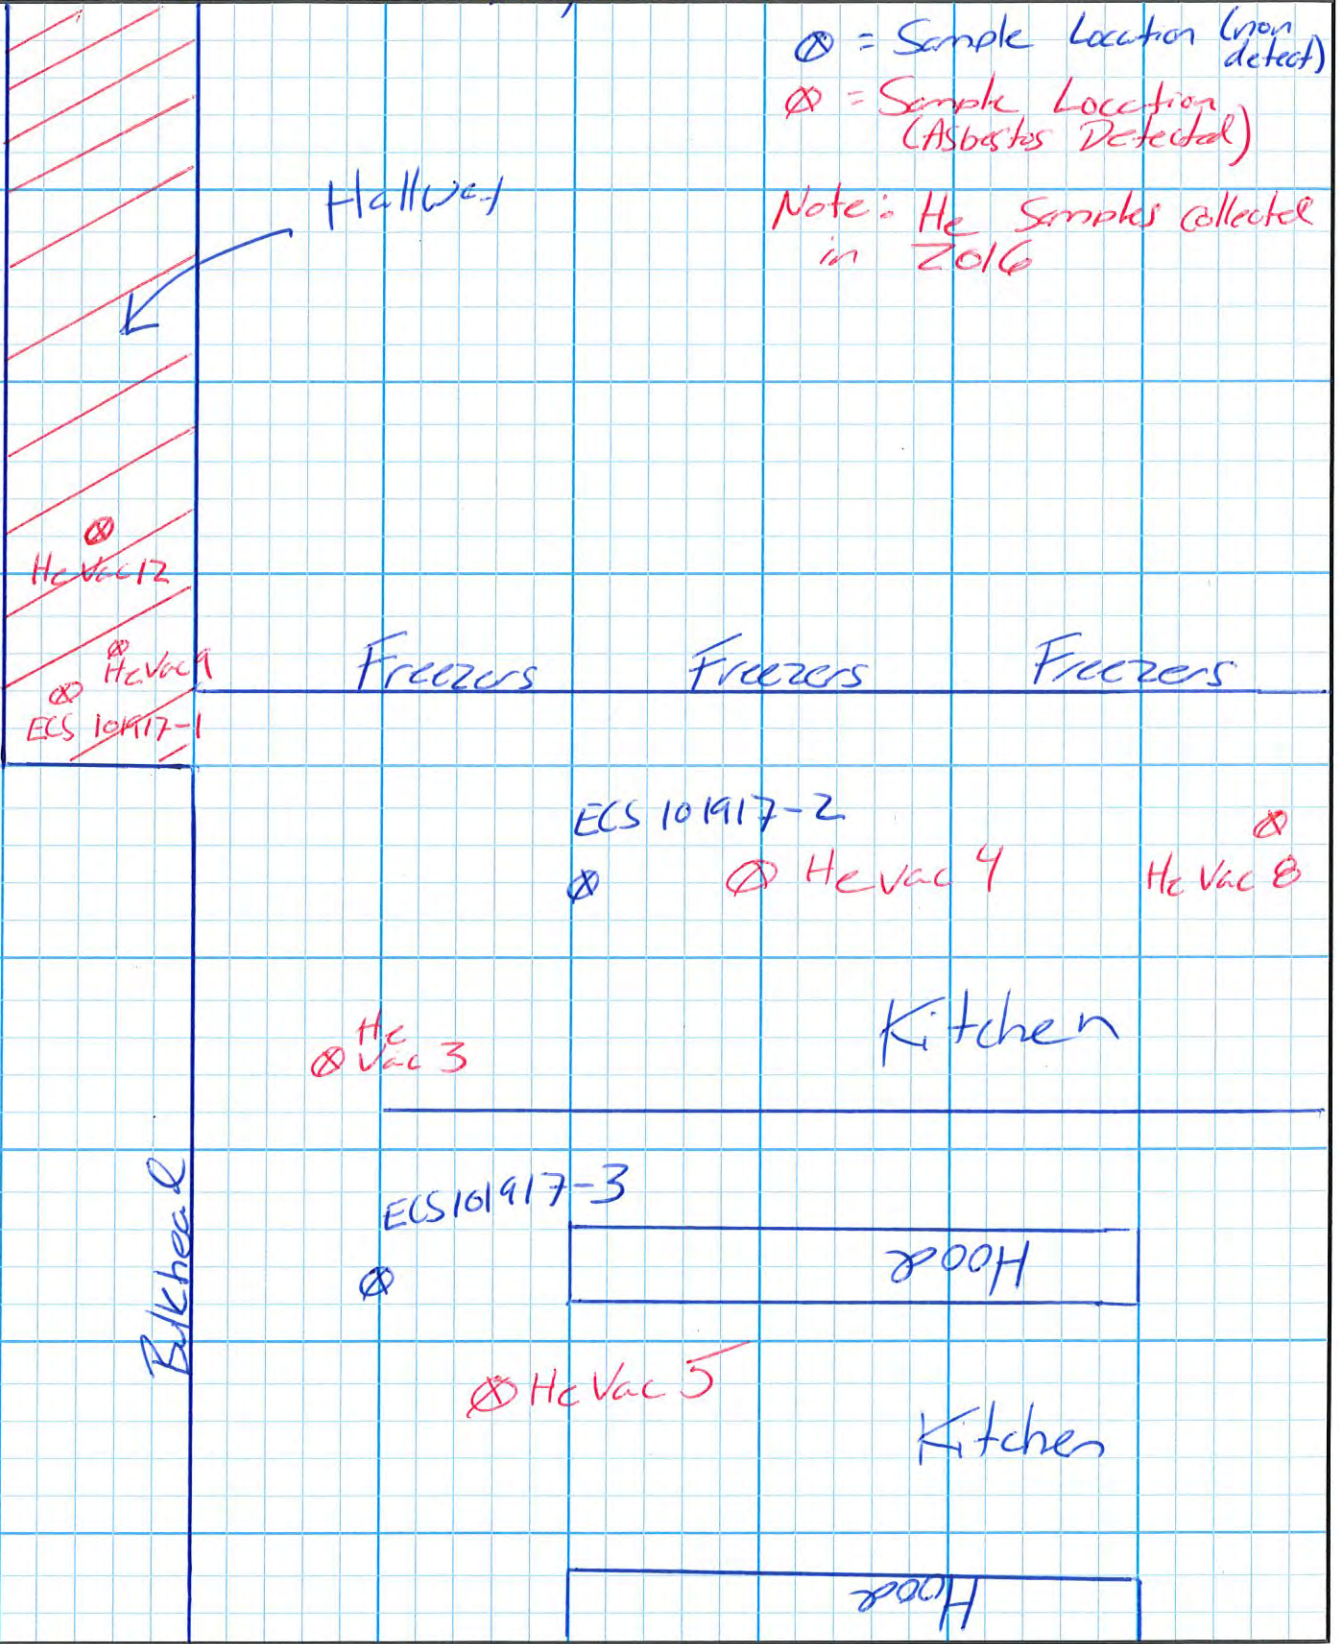 ⊗ = Sample Location (non
detect)
⊗ = Sample Location
(Asbestos Detected)
Note: He Samples collected
in 2016
Hallway
He Vac 12
He Vac 9
ECS 101917-1
Freezers Freezers Freezers
ECS 101917-2
He Vac 4
He Vac 8
He
Vac 3
Kitchen
ECS 101917-3
Hood
Bulkhead
He Vac 5
Kitchen
Hood